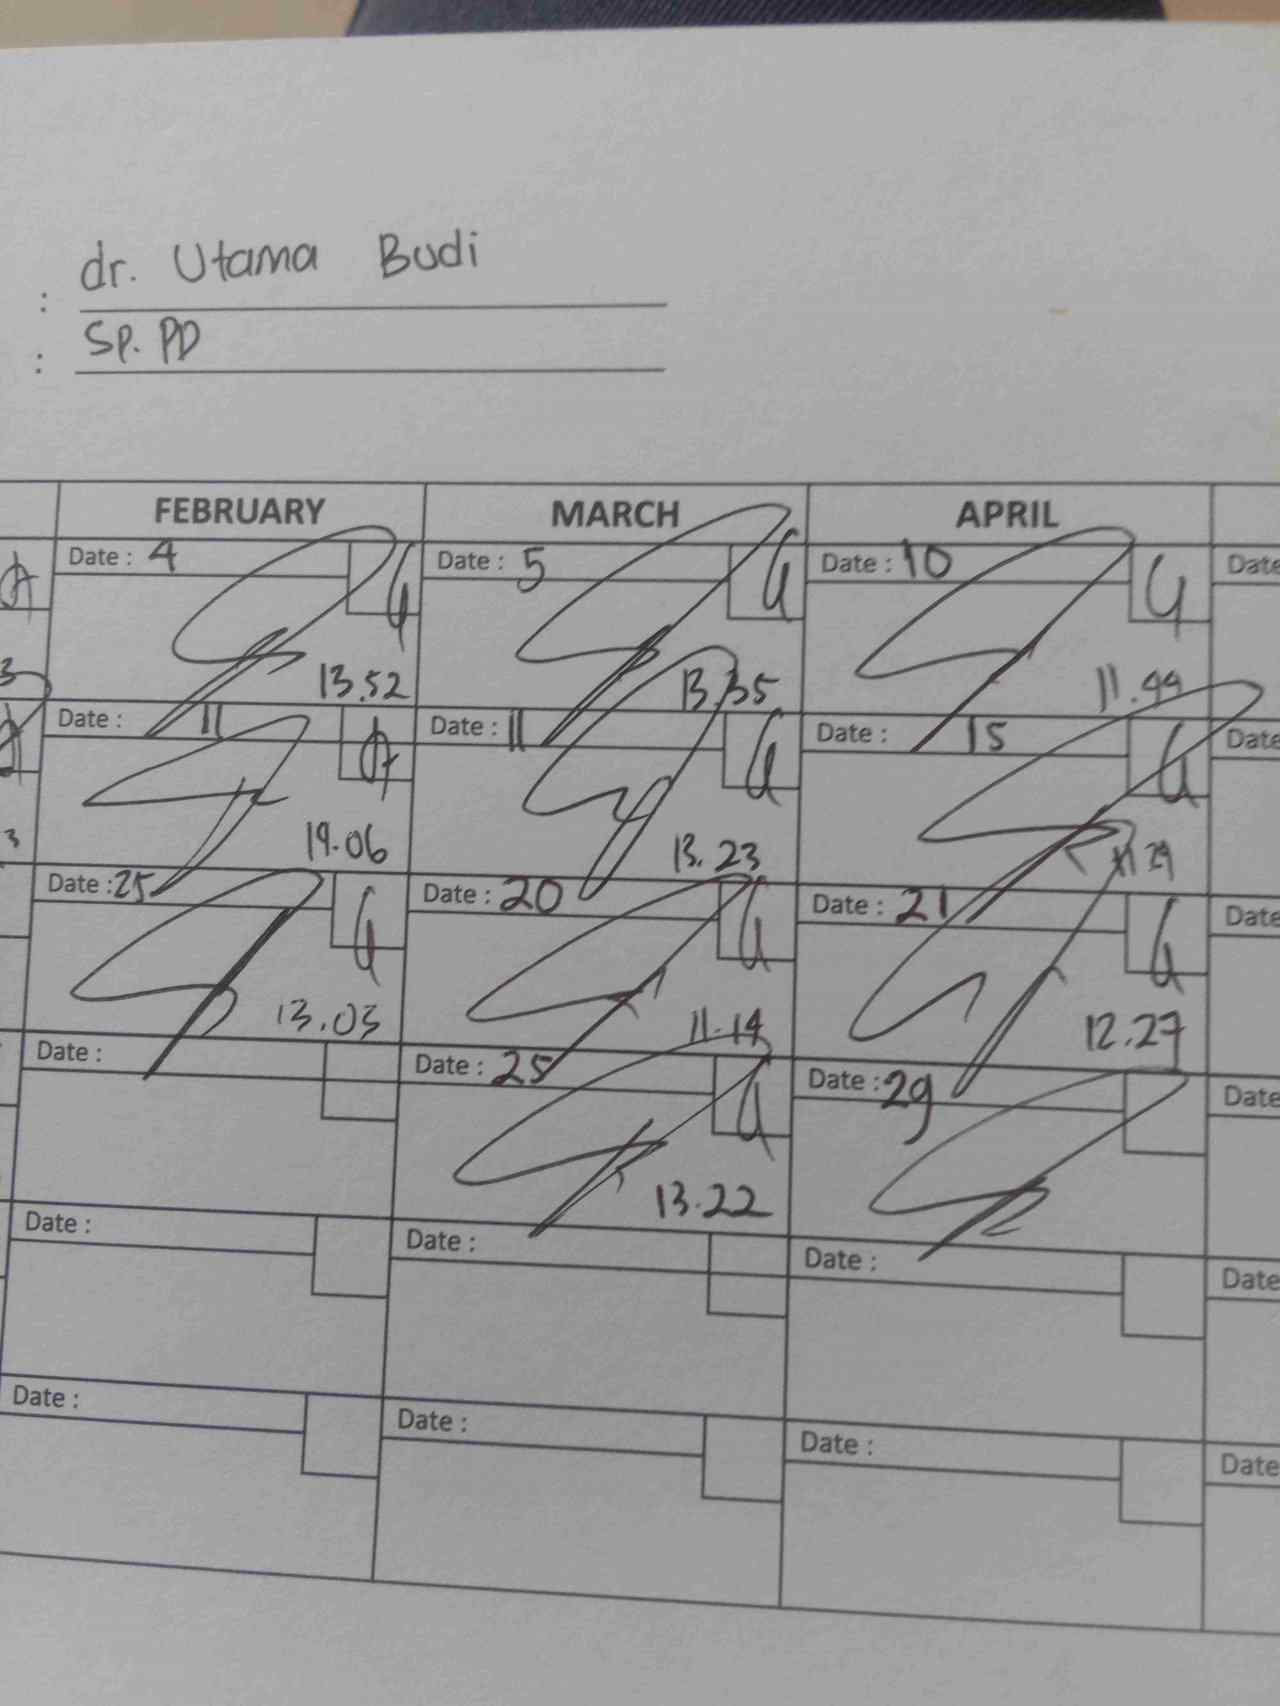 : dr. Utama Budi
: Sp. PD
FEBRUARY MARCH APRIL
Date : 4 Date : 5 Date : 10 Date
13.52 13.35 11.44
Date : 11 Date : 11 Date : 15 Date
3 14.06 13.23
Date : 25 Date : 20 Date : 21 Date
13.03 11.14 12.27
Date : Date : 25 Date : 29 Date
13.22
Date : Date : Date : Date
Date : Date : Date : Date